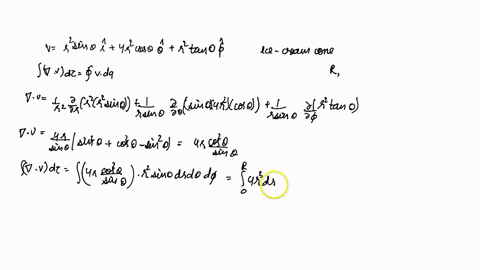 v = r² sinθ r̂ + 4r² cosθ θ̂ + r² tanθ φ̂ Ice-cream cone
∫(∇·v)dτ = ∮ v.da R,
∇·v = 1/r² ∂/∂r (r²(r² sinθ)) + 1/(r sinθ) ∂/∂θ (sinθ(4r²)(cosθ)) + 1/(r sinθ) ∂/∂φ (r² tanθ)
∇·v = 4r/sinθ [sin²θ + cos²θ - sin²θ] = 4r cos²θ/sinθ
∫(∇·v)dτ = ∫(4r cos²θ/sinθ) · r² sinθ dr dθ dφ = ∫₀ᴿ 4r² dr